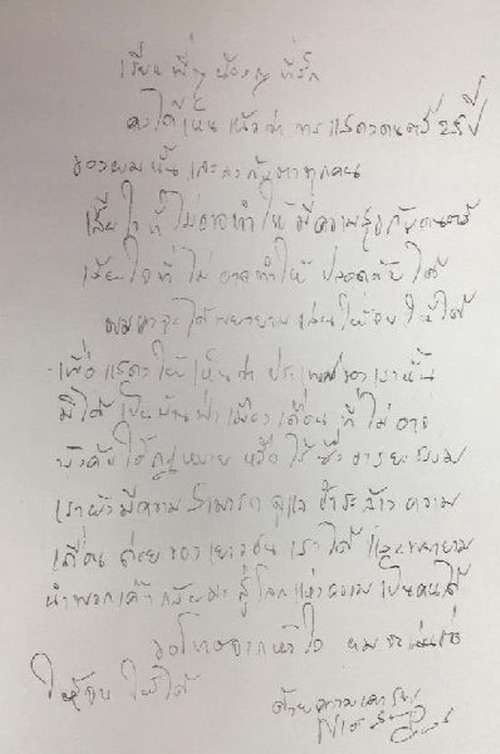 เรียน พี่ๆ น้องๆ ที่รัก
คงได้เห็นแล้วว่า การแสดงดนตรี 25 ปี
ของผมนั้น เละคาตาทุกคน
เสียใจที่ไม่อาจทำให้มีความสุขกับดนตรี
เสียใจที่ไม่อาจทำให้ปลอดภัยได้
ผมจะได้พยายามเล่นให้จบให้ได้
เพื่อแสดงให้เห็นว่า ประเทศของเรานั้น
มิได้เป็นบ้านป่าเมืองเถื่อน ที่ไม่อาจ
บังคับใช้กฎหมาย หรือไร้ซึ่งอารยะธรรม
เรายังมีความสามารถดูแล ชำระล้างความ
เถื่อนถ่อยของเยาวชนเราได้ และพยายาม
นำพวกเค้ากลับมาสู่โลกแห่งความเป็นคนได้
ขอโทษจากหัวใจ ผมจะเล่นต่อ
ให้จบให้ได้
ด้วยความเคารพ